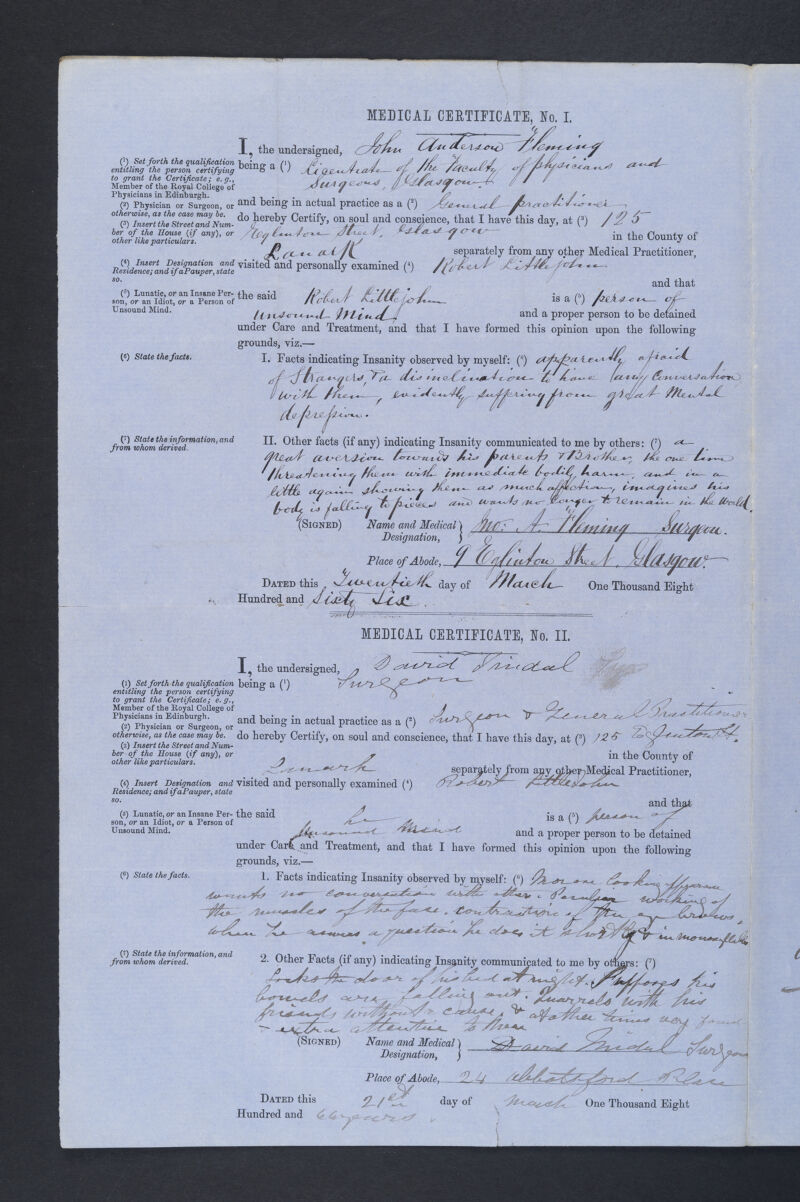 MEDICAL CERTIFICATE, No. I.
I, the undersigned, John Anderson Fleming
(1) Set forth the qualification entitling the person certifying to grant the Certificate; e.g., Member of the Royal College of Physicians in Edinburgh.
being a (1) Licentiate of the Faculty of physicians and
Surgeons, Glasgow
(2) Physician or Surgeon, or otherwise, as the case may be.
and being in actual practice as a (2) General practitioner
(3) Insert the Street and Number of the House (if any), or other like particulars.
do hereby Certify, on soul and conscience, that I have this day, at (3) 125
Eglinton Street, Glasgow in the County of
Lanark separately from any other Medical Practitioner,
(4) Insert Designation and Residence; and if a Pauper, state so.
visited and personally examined (4) Robert Littlejohn
and that
(5) Lunatic, or an Insane Person, or an Idiot, or a Person of Unsound Mind.
the said Robert Littlejohn is a (5) person of
unsound Mind. and a proper person to be detained
under Care and Treatment, and that I have formed this opinion upon the following
grounds, viz.—
(6) State the facts.
I. Facts indicating Insanity observed by myself: (6) apparently afraid
of Strangers, & a disinclination to have any Conversation
with them, evidently suffering from great Mental
depression.
(7) State the information, and from whom derived.
II. Other facts (if any) indicating Insanity communicated to me by others: (7) a
great aversion towards his parents & Brother, the one time
threatening them with immediate bodily harm, and in a
little again showing them as much affection, imagines his
body is falling to pieces and wants no longer to remain in the world.
(SIGNED) Name and Medical Designation, Jno: A. Fleming Surgeon.
Place of Abode, 9 Eglinton Street. Glasgow.
DATED this Twentieth day of March One Thousand Eight
Hundred and Sixty Six.
MEDICAL CERTIFICATE, No. II.
I, the undersigned, David Tindal
(1) Set forth the qualification entitling the person certifying to grant the Certificate; e.g., Member of the Royal College of Physicians in Edinburgh.
being a (1) Surgeon
(2) Physician or Surgeon, or otherwise, as the case may be.
and being in actual practice as a (2) Surgeon & General Practitioner
(3) Insert the Street and Number of the House (if any), or other like particulars.
do hereby Certify, on soul and conscience, that I have this day, at (3) 125 Eglinton St.
in the County of
Lanark separately from any other Medical Practitioner,
(4) Insert Designation and Residence; and if a Pauper, state so.
visited and personally examined (4) Robert Littlejohn
and that
(5) Lunatic, or an Insane Person, or an Idiot, or a Person of Unsound Mind.
the said he is a (5) person of
Unsound Mind and a proper person to be detained
under Care and Treatment, and that I have formed this opinion upon the following
grounds, viz.—
(6) State the facts.
1. Facts indicating Insanity observed by myself: (6) Morose looking appearance
wants no conversation with others. Peculiar working of
the muscles of the face. contraction of the eye brows,
when he answers a question he does it shortly & in monosyllables
(7) State the information, and from whom derived.
2. Other Facts (if any) indicating Insanity communicated to me by others: (7)
Locks the door of his bed at night. Supposes his
bowels are falling out. Quarrels with his
friends without cause, & at other times very fond
extra attentive to them
(SIGNED) Name and Medical Designation, David Tindal Surgeon
Place of Abode, 24 Abbotsford Place
DATED this 21st day of March One Thousand Eight
Hundred and 66 years.